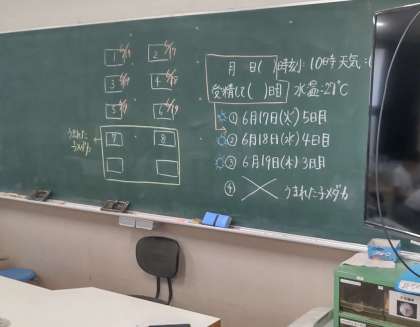 1 6/17 2 6/17
3 6/18 4 6/18
5 6/19 6 6/19
うまれた
子メダカ
7 8
月 日( ) 時刻:10時 天気:
受精して( )日目 水温:27℃
① 6月17日(火) 5日目
② 6月18日(水) 4日目
③ 6月19日(木) 3日目
④ うまれた子メダカ